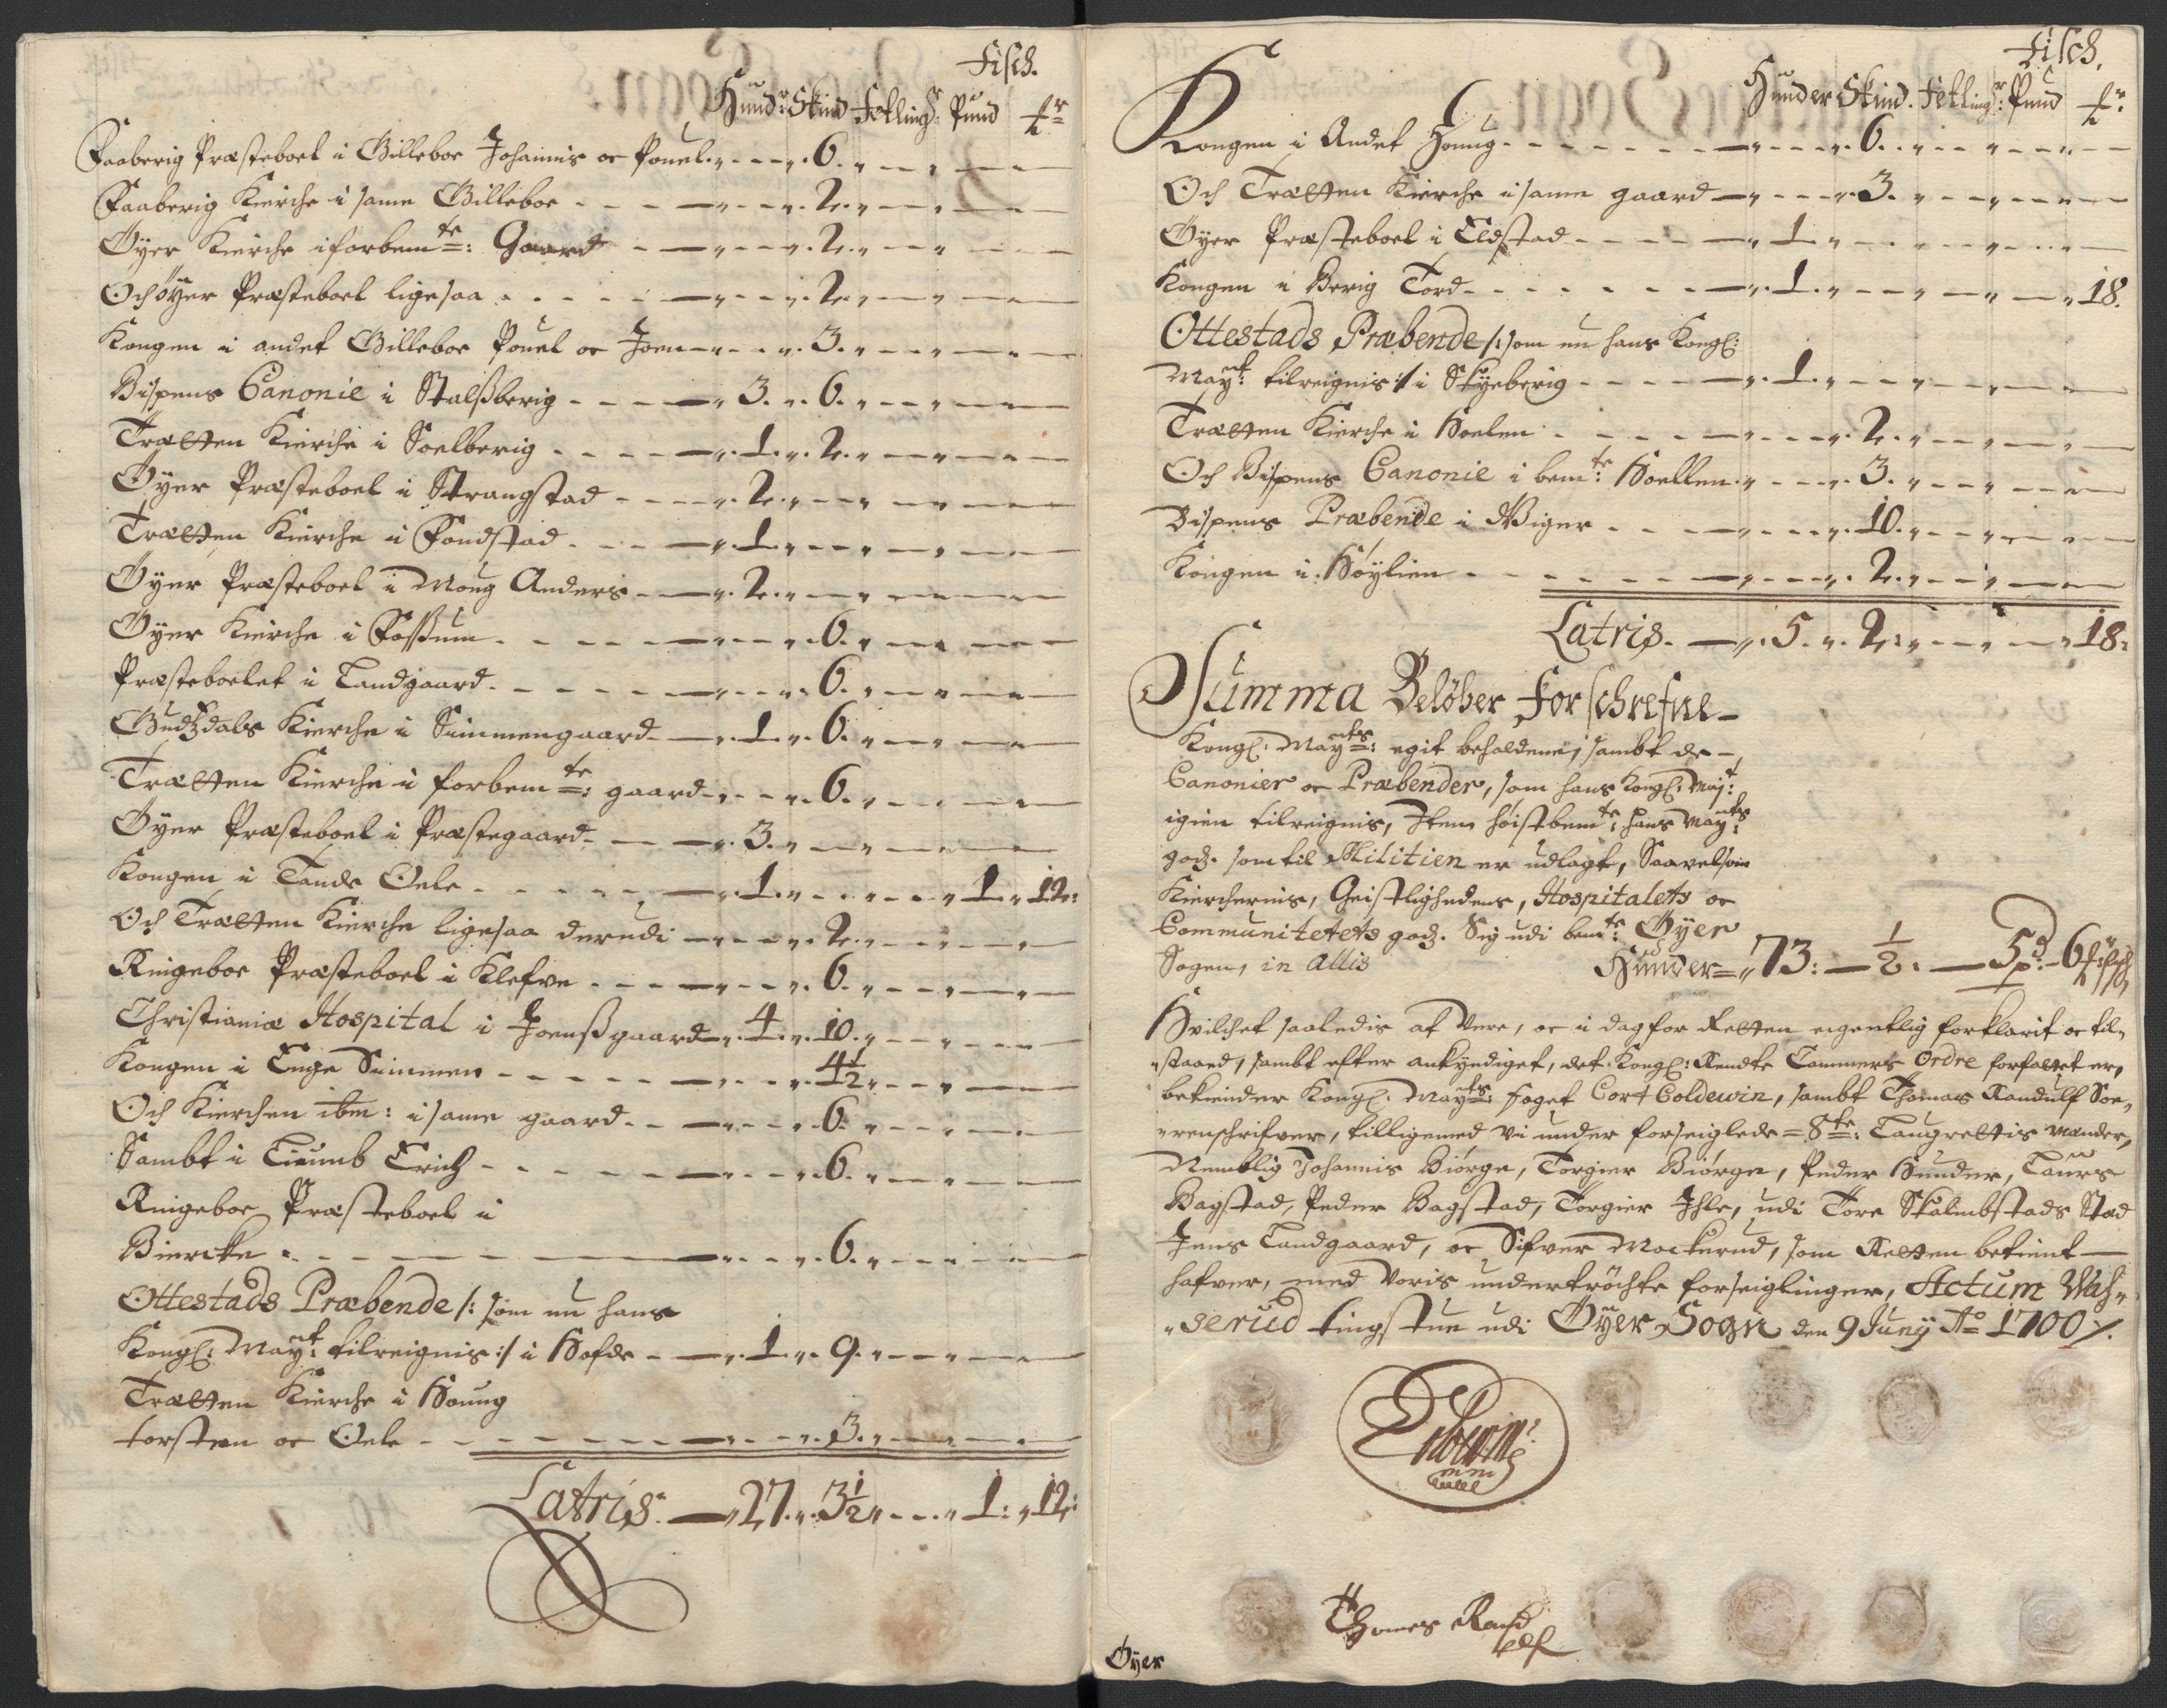 Fisch.
Hund: Skind Fetling: Pund
Faaberig Præsteboel i Billeboe Johannis oc Pouel " 6.
Faaberig Kierche i same Billeboe " 2.
Øyer Kierche i forbemte: Gaard " 2.
Och öÿer Præsteboel ligesaa " 2.
Kongen i andet Billeboe Pouel oc Joen " 3.
Bispens Canonie i Stalssberig 3. 6.
Trætten Kierche i Soelberig 1. 2.
Øyer Præsteboel i Strangstad 2.
Trætten Kierche i Fondstad 1.
Øyer Præsteboel i Moug Anders 2.
Øyer Kierche i Fossum 6.
Præsteboelet i Landgaard 6.
Gudzdals Kierche i Simmengaard 1. 6.
Trætten Kierche i forbemte: gaard 6.
Øyer Præsteboel i Præstegaard 3.
Kongen i Tande Oele 1. 1. 12:
Och Trætten Kierche ligesaa derudi 2.
Ringeboe Præsteboel i Klefve 6.
Christianiæ Hospital i Joenssgaard 4. 10.
Kongen i Enge Simmen 4½
Och Kierchen ibm: i same gaard 6.
Sambt i Liumb Erich 6.
Ringeboe Præsteboel i
Biercke 6.
Ottestads Præbende /: som nu hans
Kongl: Mayt: tilreignis :/ i Hofde 1. 9.
Trætten Kierche i Houug
torsten oc Oele 3.
Latris. 27. 3½ 1: 12:
Fisch.
Hunder Skind. Fetling: Pund
Kongen i Andet Houug 6.
Och Trætten Kierche i same gaard 3.
Øyer Præsteboel i Eldstad 1.
Kongen i Berig Tord 1. 18.
Ottestads Præbende /: som nu hans Kongl:
Mayt: tilreignis :/ i Skyeberig 1.
Trætten Kierche i Hoelen 2.
Och Bispens Canonie i bemte: Hoellen 3.
Bispens Præbende i Wiger 10.
Kongen i Höylien 2.
Latris. 5. 2. 18:
Summa Belöber Forschrefne
Kongl: Mayts: egit beholdene, sambt de
Canonier oc Præbender, som hans Kongl: Mayt:
igien tilreignis, Item höistbemte: hans Mayts:
godz. som til Militien er udlagt, Saavelsom
Kierchernis, Geistlighedens, Hospitalets oc
Communitetets godz. Sig udi bemte: Øyer
Sogen, in Allis Hunder = 73: ½. 5 pd: 6
Hvilchet saaledis at Vere, oc i dag for Retten eigentlig forklarit oc til¬
staaed, sambt efter ankyndiget, det Kongl: Rendte Cammers Ordre forfattet er,
bekiender Kongl: Mayts: foget Cort Coldewin, sambt Thomas Randulf Soe¬
renschrifver, tilligemed vi under forseiglede = 8te: Laugrettis Mænder,
Nemblig Johannis Biörge, Torgier Biörge, Peder Hunder, Laurs
Bagstad, Peder Bagstad, Torgier Ihle, udi Tore Skalmbstads Stad
Jens Landgaard, oc Sifver Mockerud, som Retten betient
hafver, med Voris undertröchte forseiglinger, Actum Wis¬
serud tingstue udi Öyer Sogn den 9 Junij Ao 1700 /.
Thomes Randulf
Öyer